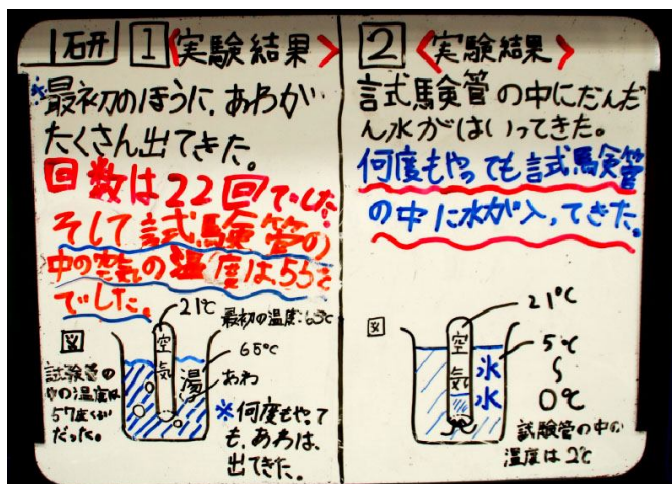 研 1 〈実験結果〉
※最初のほうに、あわが
たくさん出てきた。
回数は22回でした。
そして試験管の
中の空気の温度は55℃
でした。
図
21℃
最初の温度:65℃
空気
65℃
湯
あわ
試験管の
中の温度は
57度くらい
だった。
※何度もやって
も、あわは、
出てきた。
2 〈実験結果〉
試験管の中にだんだ
ん水がはいってきた。
何度もやっても試験管
の中に水が入ってきた。
図
21℃
空気
氷水
5℃
〜
0℃
試験管の中の
温度は2℃